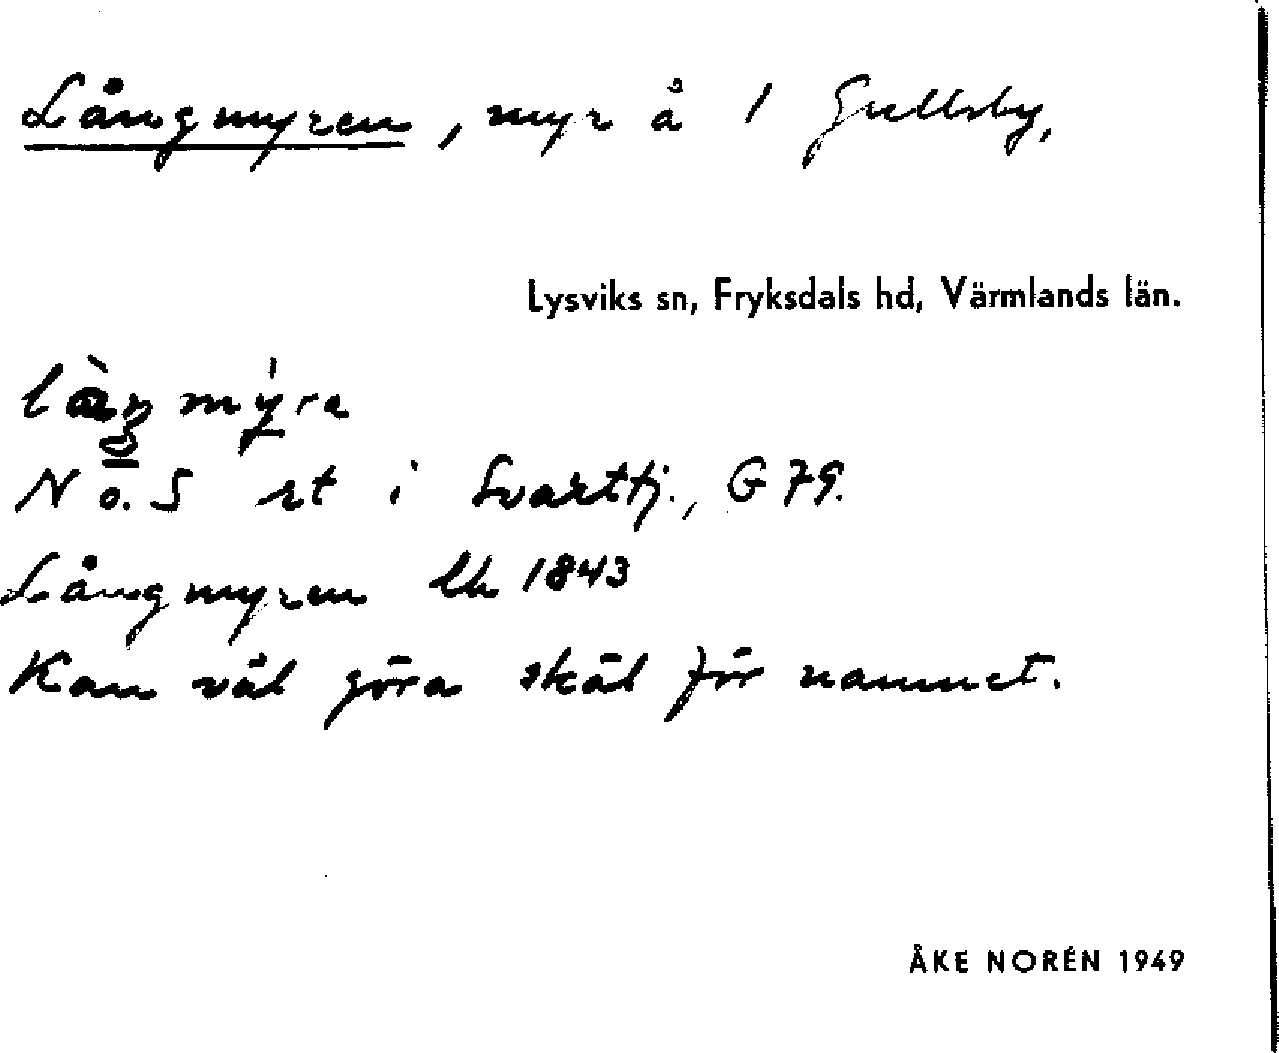 Långmyren, myr å 1 Gullsby,
Lysviks sn, Fryksdals hd, Värmlands län.
N o. S rt i Svarttj., G 79.
Långmyren Lh 1843
Kan väl göra skäl för namnet.
ÅKE NORÉN 1949